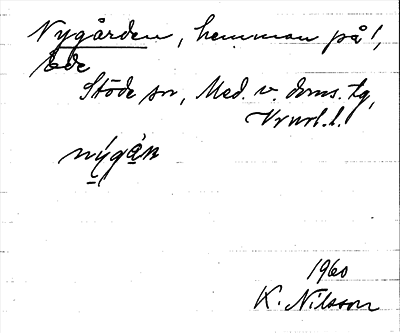 Nygården, hemman på,
Ede
Stöde sn, Med. v. doms. tg,
Vrnrl. l.
nýgán
1960
K. Nilsson